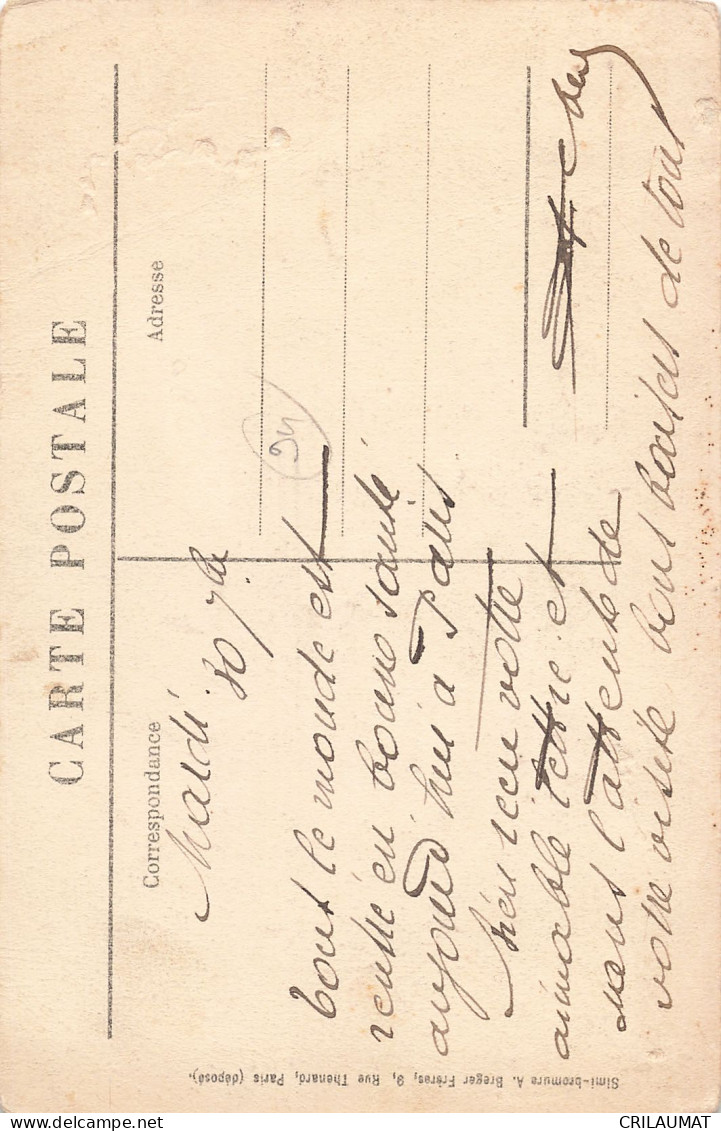 CARTE POSTALE
Correspondance
Adresse
Mardi 30 7bre
Tout le monde est
rentré en bonne santé
aujourd'hui à Paris
Bien reçu votre
aimable lettre et
dans l'attente de
votre visite bons baisers de tous
Simi-bromure A. Breger Frères, 9, Rue Thenard, Paris (déposé).
CRILAUMAT